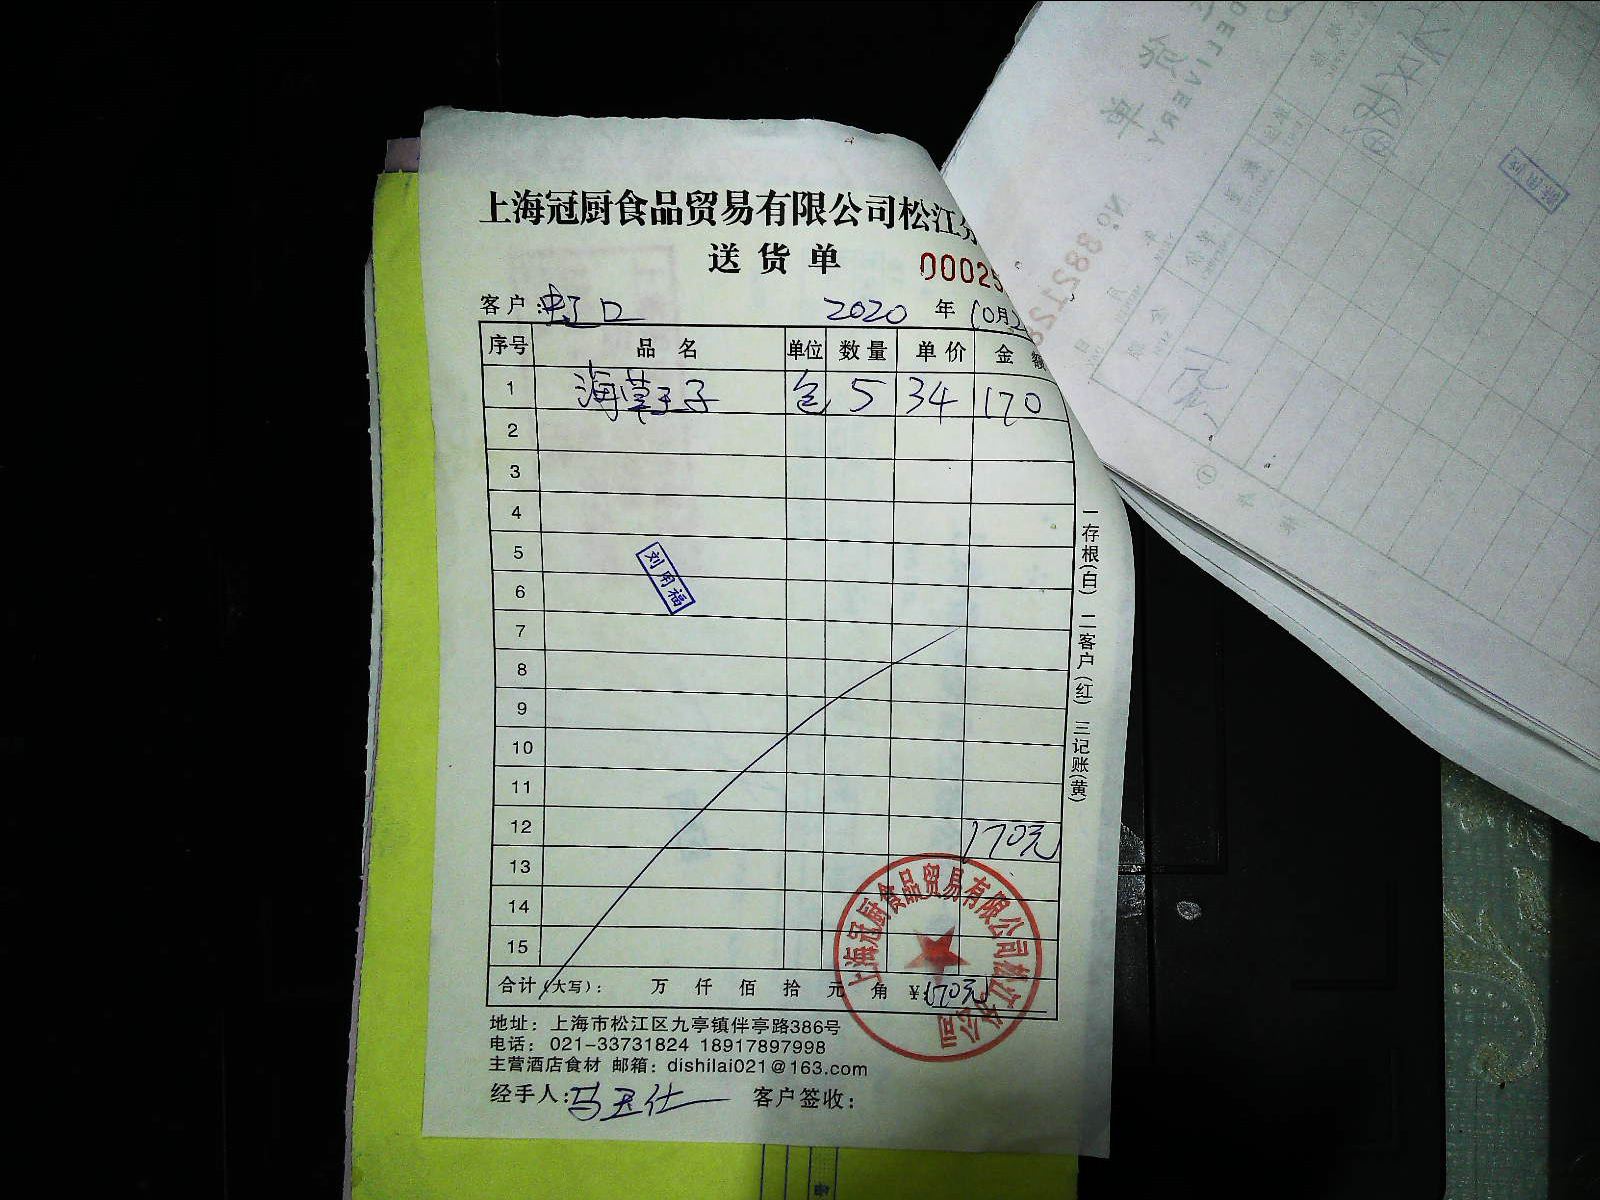 上海冠厨食品贸易有限公司松江分
送货单
00025
客户:虹口 2020 年 10月2
序号 品名 单位 数量 单价 金额
1 海草王子 包 5 34 170
2
3
4
5
6
7
8
9
10
11
12 170元
13
14
15
刘用福
合计(大写): 万 仟 佰 拾 元 角 ¥170元
上海冠厨食品贸易有限公司松江分公司
地址: 上海市松江区九亭镇伴亭路386号
电话: 021-33731824 18917897998
主营酒店食材 邮箱: dishilai021@163.com
经手人: 客户签收:
一存根(白) 二客户(红) 三记账(黄)
DELIVERY